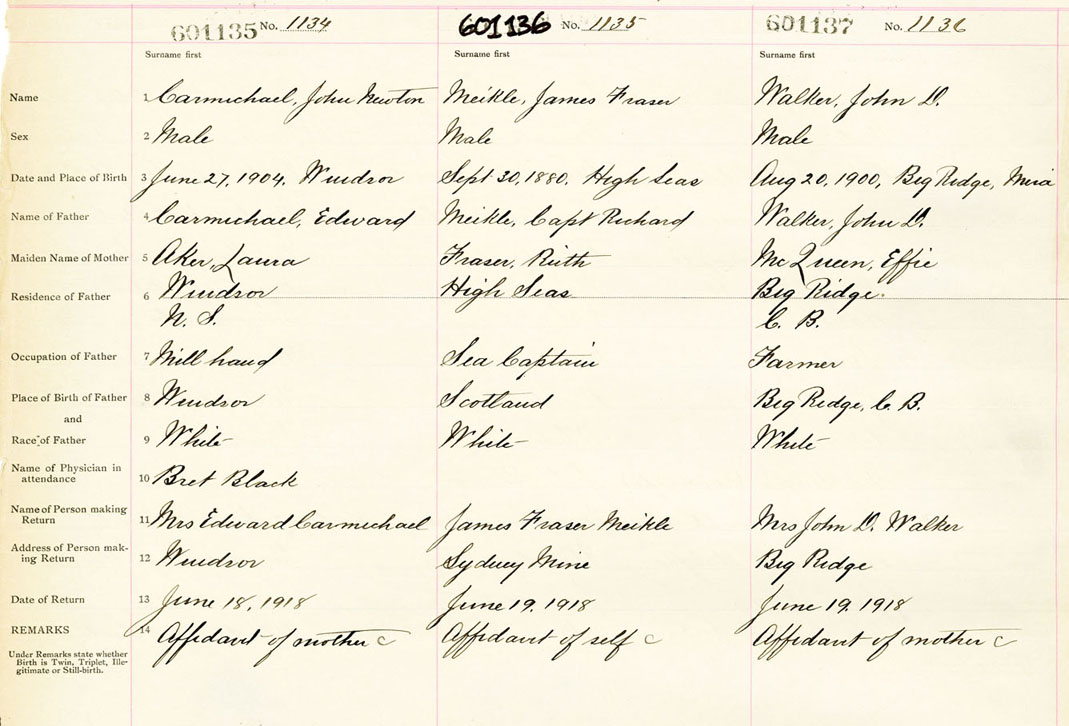 601135 No. 1134 601136 No. 1135 601137 No. 1136
Surname first Surname first Surname first
Name 1 Carmichael, John Newton Meikle, James Fraser Walker, John D.
Sex 2 Male Male Male
Date and Place of Birth 3 June 27, 1904. Windsor Sept 30, 1880. High Seas Aug 20, 1900, Big Ridge, Mira
Name of Father 4 Carmichael, Edward Meikle, Capt Richard Walker, John D.
Maiden Name of Mother 5 Aker, Laura Fraser, Ruth McQueen, Effie
Residence of Father 6 Windsor High Seas Big Ridge
N. S. C. B.
Occupation of Father 7 Mill hand Sea Captain Farmer
Place of Birth of Father 8 Windsor Scotland Big Ridge, C. B.
and
Race of Father 9 White White White
Name of Physician in
attendance 10 Bret Black
Name of Person making
Return 11 Mrs Edward Carmichael James Fraser Meikle Mrs John D. Walker
Address of Person mak-
ing Return 12 Windsor Sydney Mine Big Ridge
Date of Return 13 June 18, 1918 June 19, 1918 June 19, 1918
REMARKS 14 Affidavit of mother C Affidavit of self C Affidavit of mother C
Under Remarks state whether
Birth is Twin, Triplet, Ille-
gitimate or Still-birth.